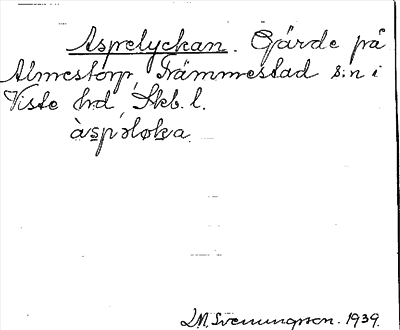 Asprelyckan. Gärde på
Almestorp, Främmestad s:n i
Viste hrd, Skb. l.
àspəløka.
L.M. Svenungson. 1939.